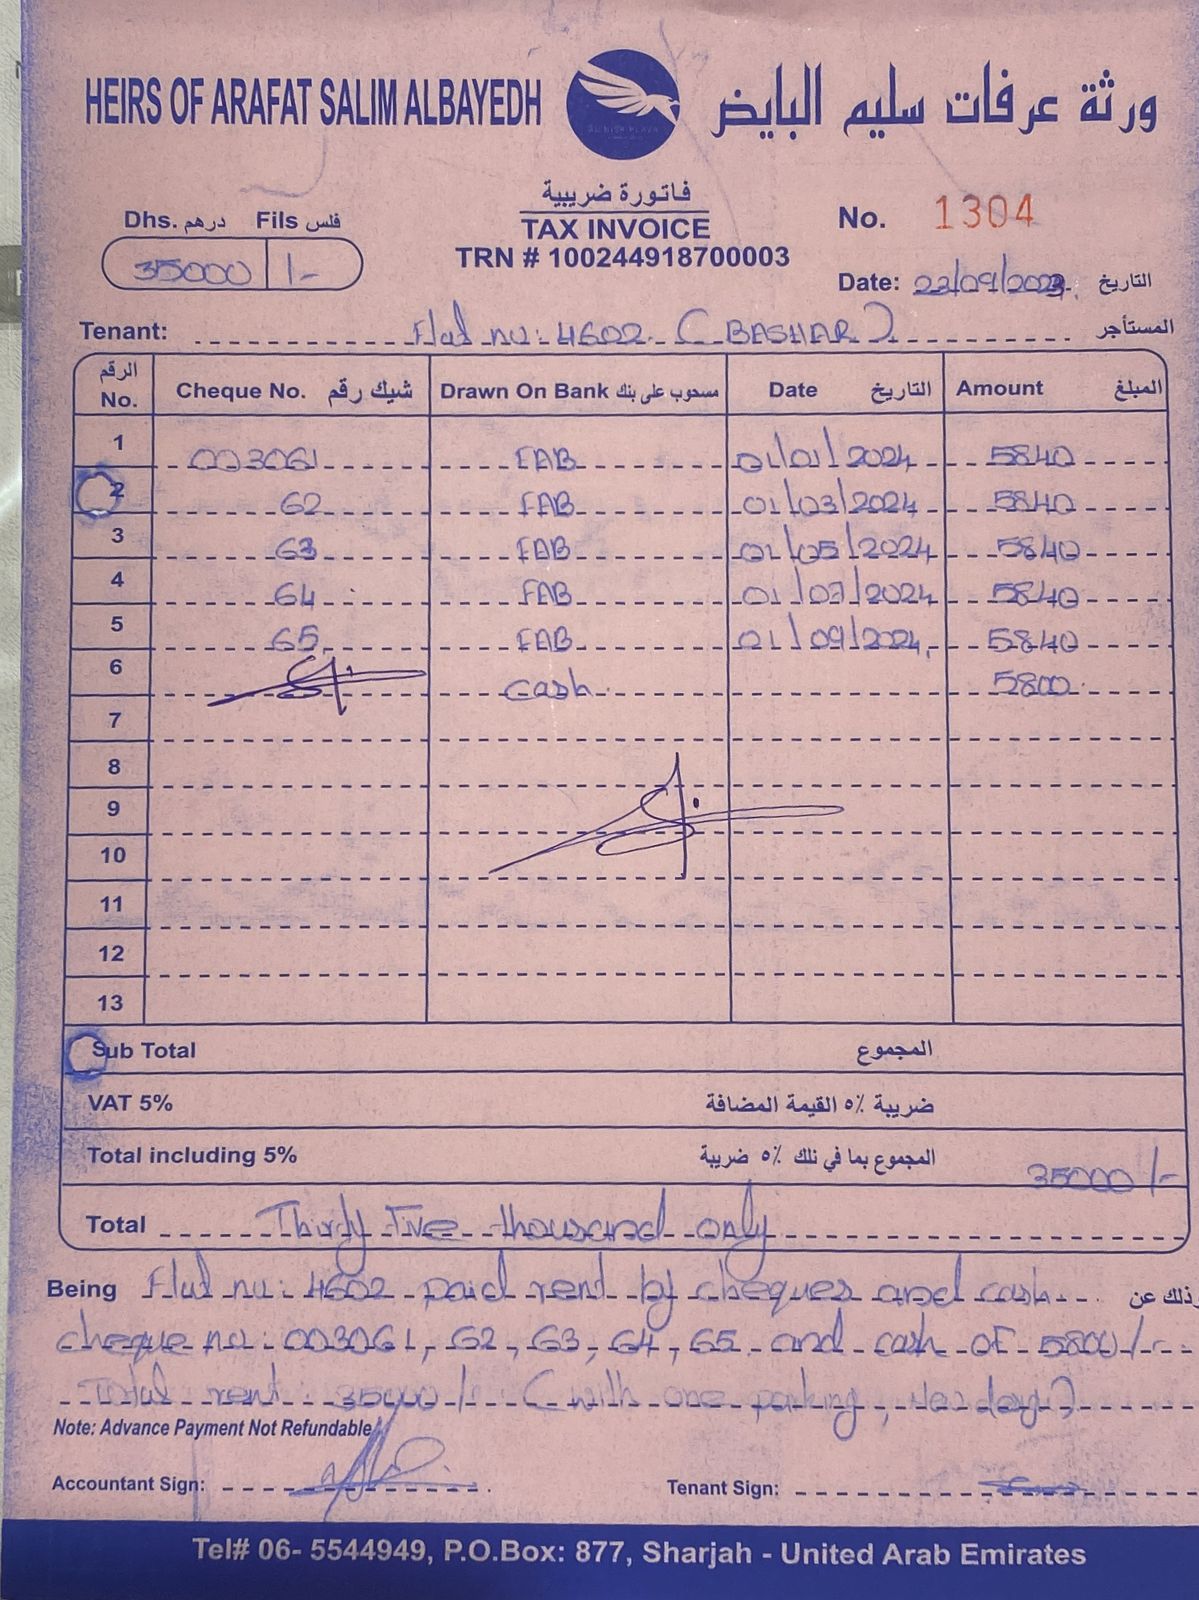 HEIRS OF ARAFAT SALIM ALBAYEDH
ورثة عرفات سليم البايض
فاتورة ضريبية
TAX INVOICE
TRN # 100244918700003
Dhs. درهم Fils فلس
35000 /-
No. 1304
Date: 23/09/2023 التاريخ
Tenant: Flat no: 4602 (BASHAR) المستأجر
الرقم No. Cheque No. شيك رقم Drawn On Bank مسحوب على بنك Date التاريخ Amount المبلغ
1 003061 FAB 01/01/2024 5840
2 62 FAB 01/03/2024 5840
3 63 FAB 01/05/2024 5840
4 64 FAB 01/07/2024 5840
5 65 FAB 01/09/2024 5840
6 Cash 5800
7
8
9
10
11
12
13
Sub Total المجموع
VAT 5% ضريبة ٥٪ القيمة المضافة
Total including 5% المجموع بما في تلك ٥٪ ضريبة 35000/-
Total Thirty Five thousand only
Being Flat no: 4602 paid rent by cheques and cash وذلك عن
cheque no: 003061, 62, 63, 64, 65 and cash of 5800/-
Total rent: 35000/- (with one parking,
Note: Advance Payment Not Refundable
Accountant Sign: Tenant Sign:
Tel# 06- 5544949, P.O.Box: 877, Sharjah - United Arab Emirates